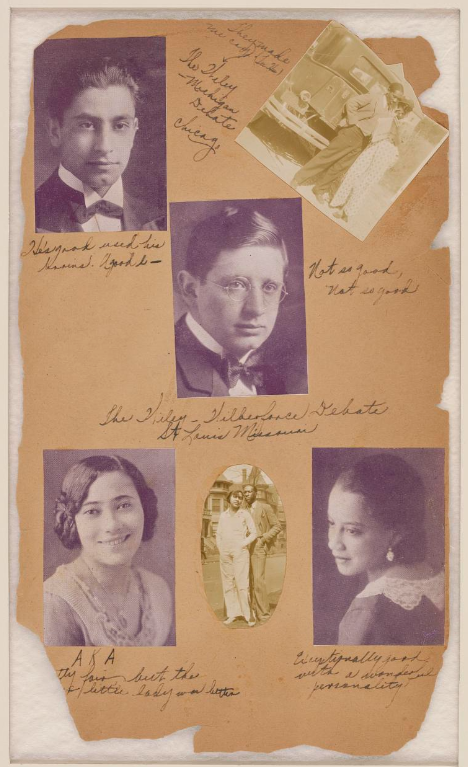 The Wiley
- Michigan
Debate
Chicago
He's good used his
Not so good,
Not so good
The Wiley - Wilberforce Debate
St Louis Missouri
A K A
fair but the
little lady was better
Exceptionally good
with a wonderful
personality